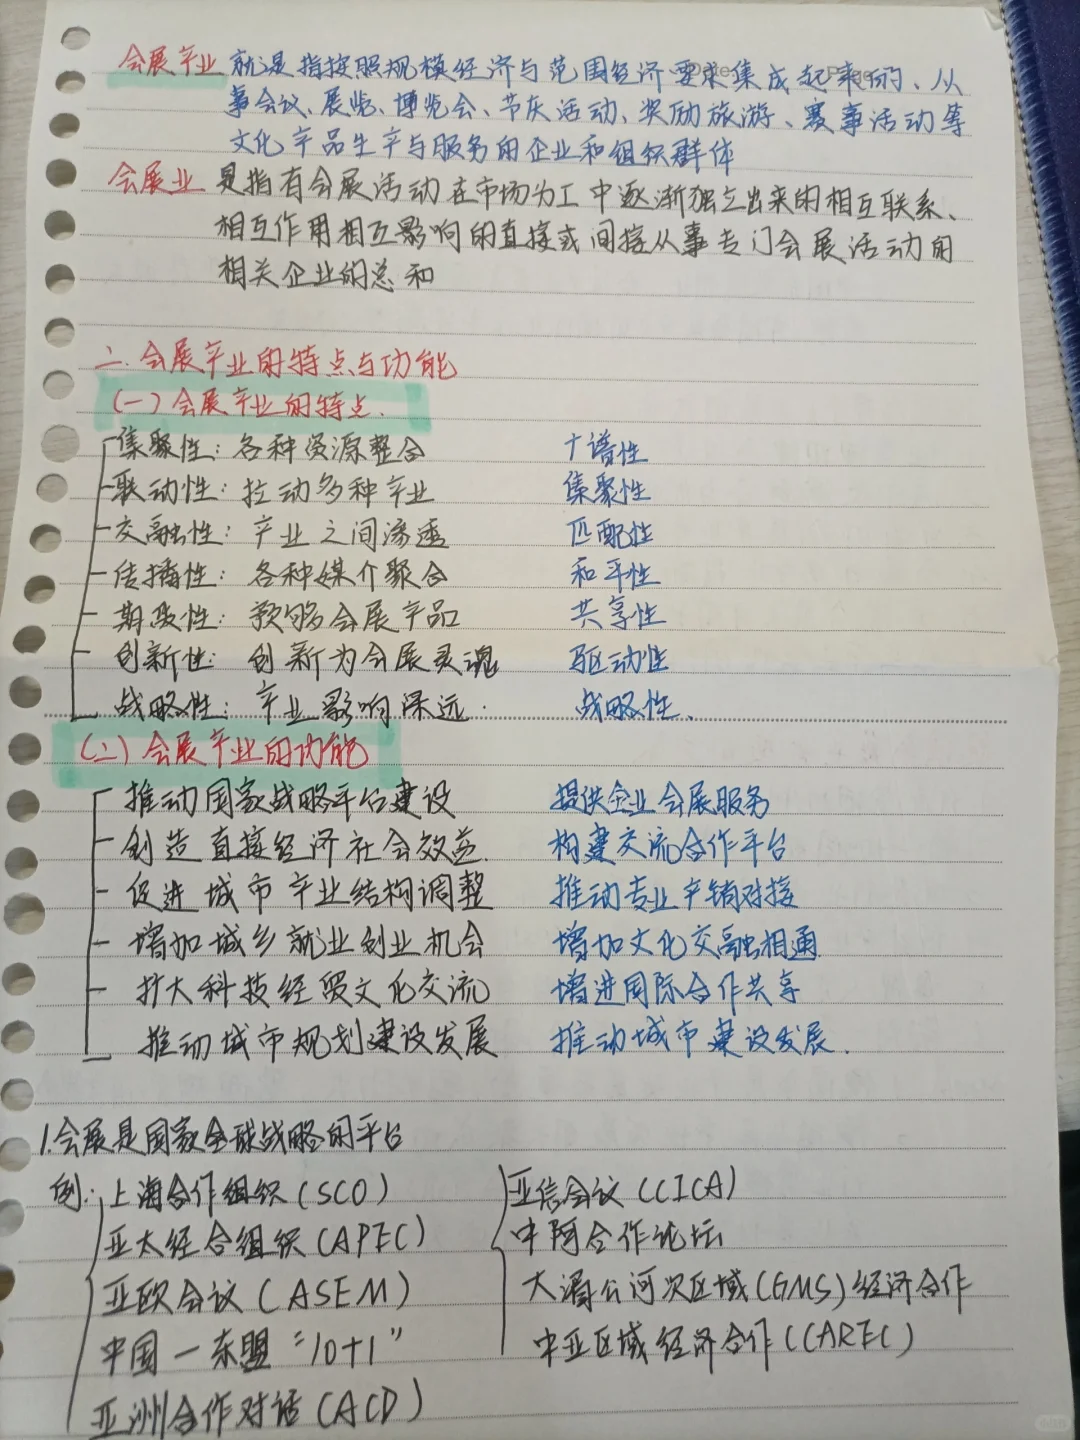 会展产业 就是指按照规模经济与范围经济要求集成起来的、从
事会议、展览、博览会、节庆活动、奖励旅游、赛事活动等
文化产品生产与服务的企业和组织群体
会展业 是指有会展活动在市场为工中逐渐独立出来的相互联系、
相互作用相互影响的直接或间接从事专门会展活动的
相关企业的总和
二.会展产业的特点与功能
(一)会展产业的特点.
集聚性:各种资源整合 谐性
联动性:拉动多种产业 集聚性
交融性:产业之间渗透 匹配性
传播性:各种媒介聚合 和平性
期货性:预够会展产品 共享性
创新性:创新为会展灵魂 驱动性
战略性:产业影响深远. 战略性、
(二)会展产业的功能
推动国家战略平台建设 提供企业会展服务
创造直接经济社会效益. 构建交流合作平台
促进城市产业结构调整 推动专业产销对接
增加城乡就业创业机会 增加文化交融相通
扩大科技经贸文化交流 增进国际合作共享
推动城市规划建设发展 推动城市建设发展.
1.会展是国家全球战略的平台
例:上海合作组织(SCO) 亚信会议(CICA)
亚太经合组织(APEC) 中阿合作论坛
亚欧会议(ASEM) 大湄公河次区域(GMS)经济合作
中国一东盟“10+1” 中亚区域经济合作(CAREC)
亚洲合作对话(ACD)